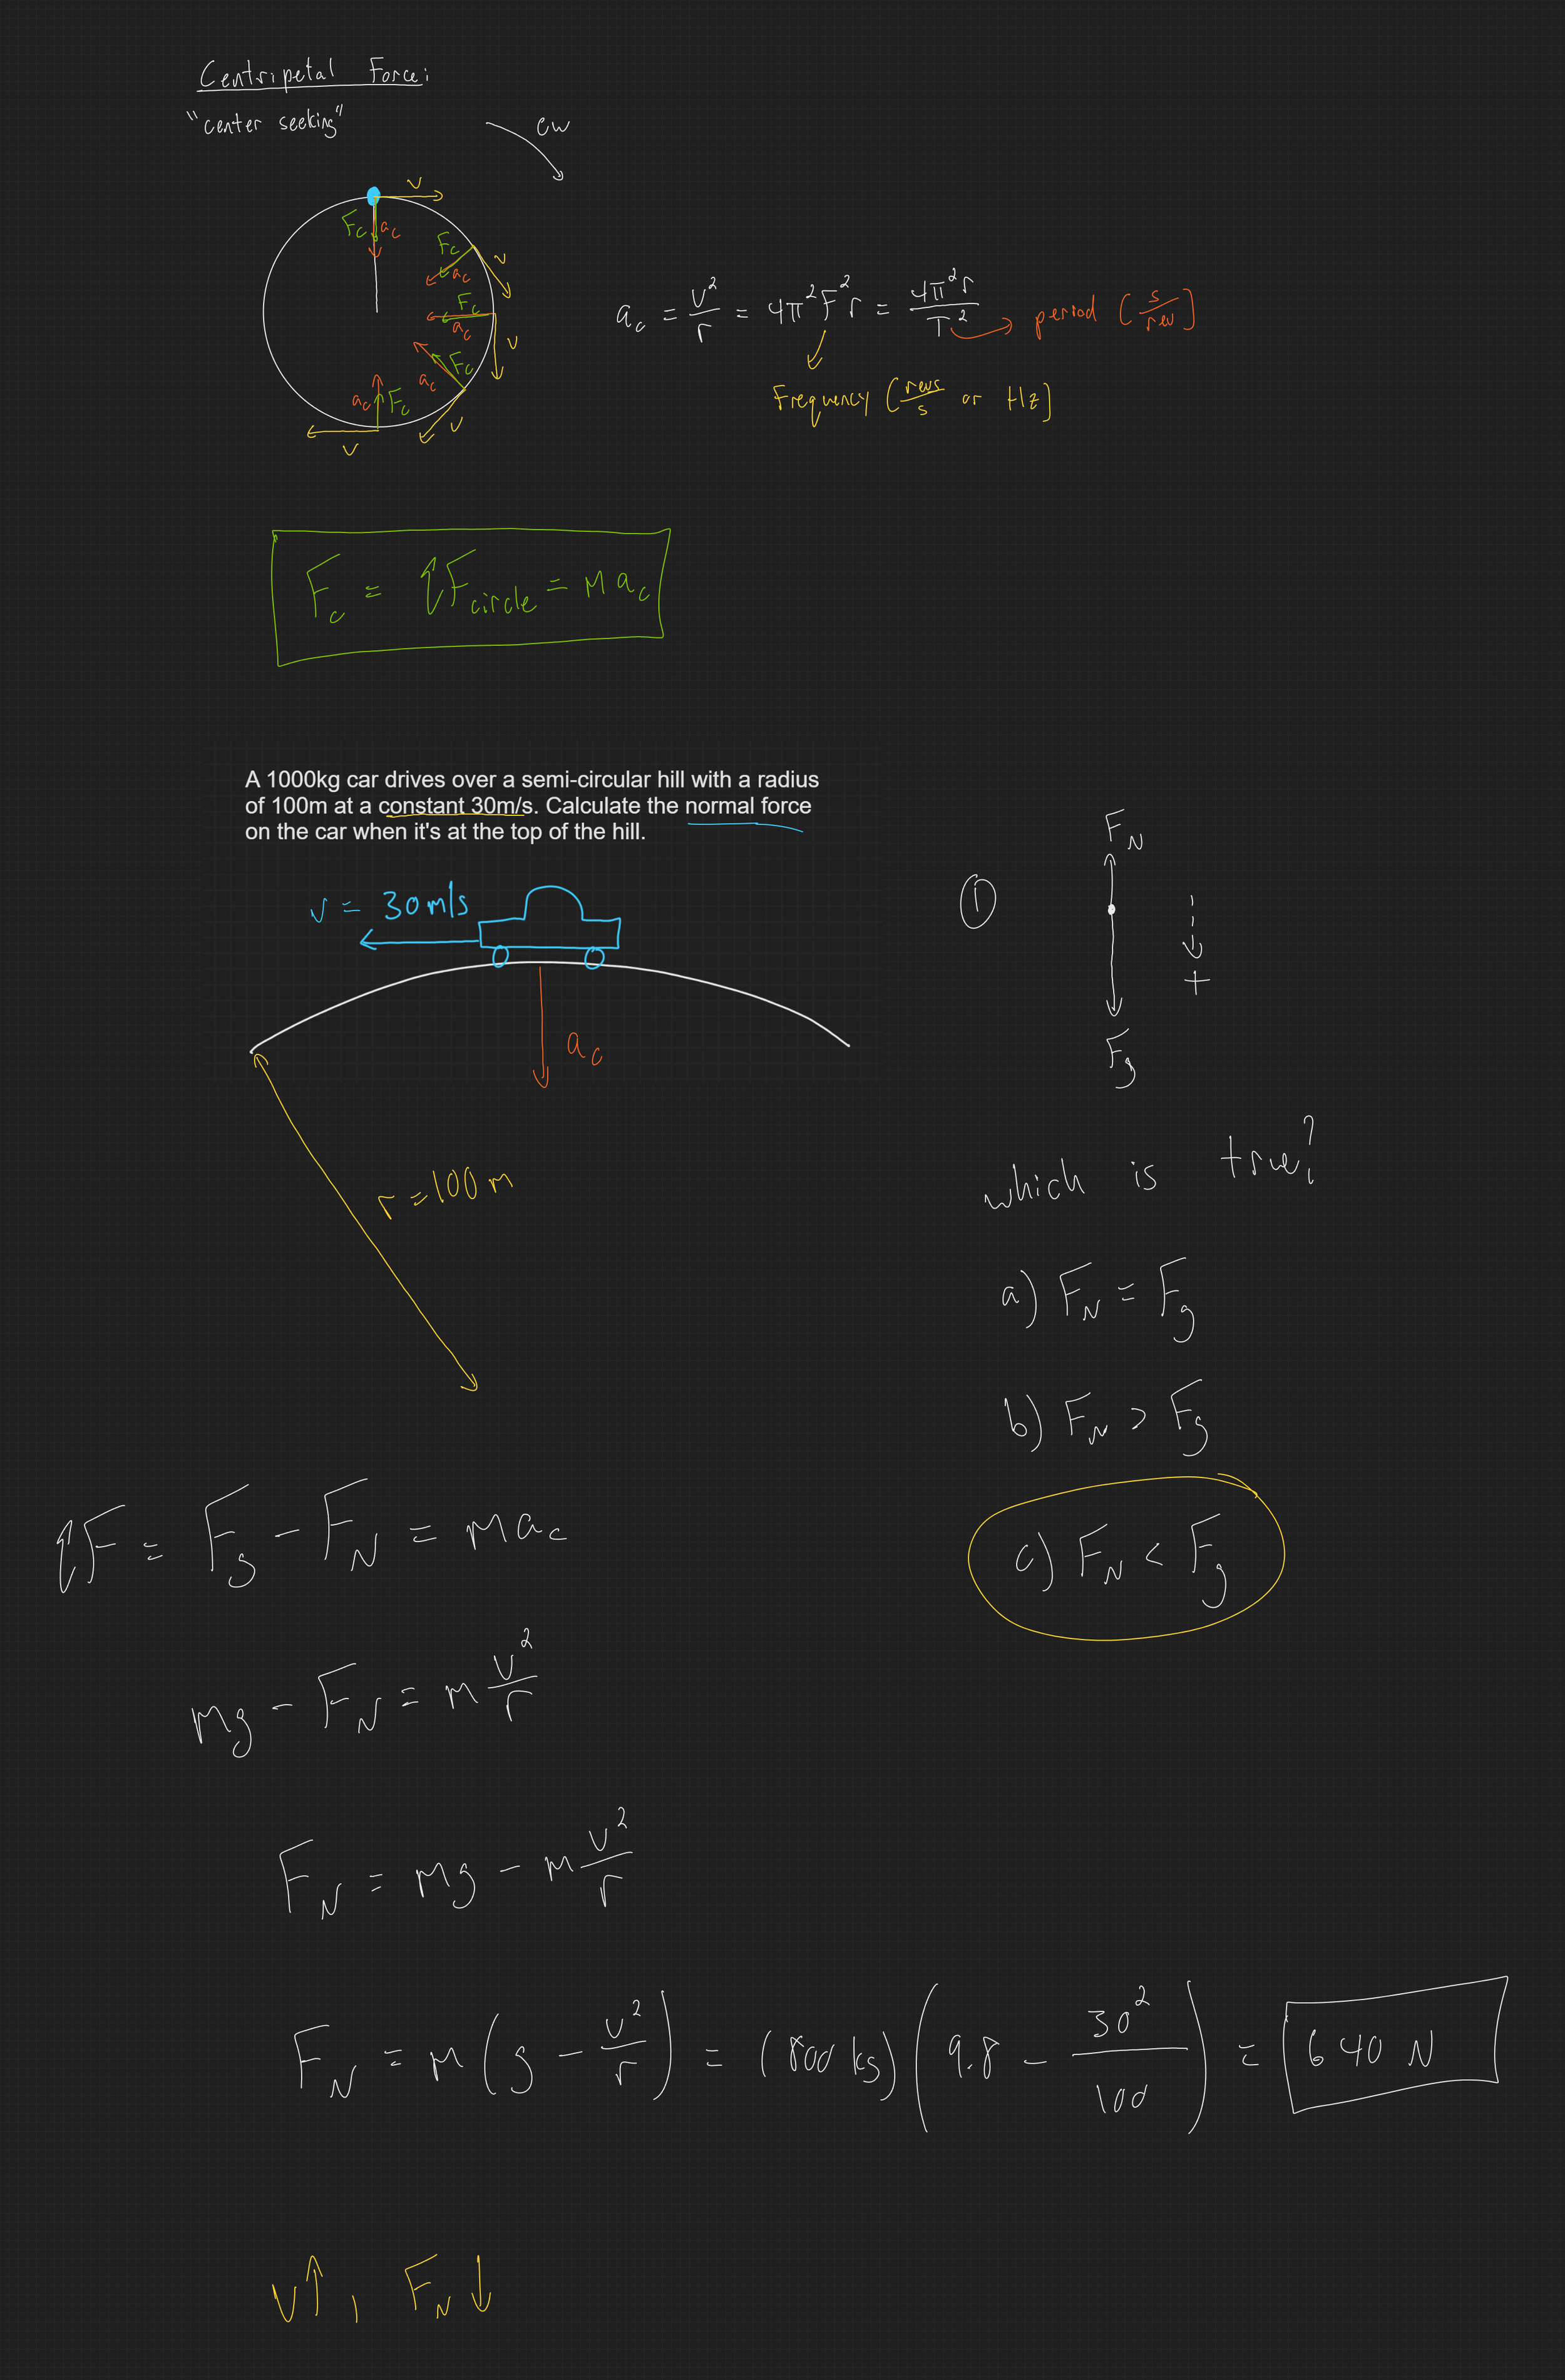 Centripetal Force:
"center seeking"
cw
v
Fc ac
Fc ac v
Fc ac v
Fc ac v
ac Fc v
ac = v²/r = 4π²F²r = 4π²r/T² → period (s/rev)
Frequency (revs/s or Hz)
Fc = ΣFcircle = mac
A 1000kg car drives over a semi-circular hill with a radius
of 100m at a constant 30m/s. Calculate the normal force
on the car when it's at the top of the hill.
v = 30m/s
ac
r = 100m
①
FN
+
Fg
which is true?
a) FN = Fg
b) FN > Fg
c) FN < Fg
ΣF = Fg - FN = mac
mg - FN = m v²/r
FN = mg - m v²/r
FN = m(g - v²/r) = (800 kg)(9.8 - 30²/100) = 640 N
v↑, FN↓